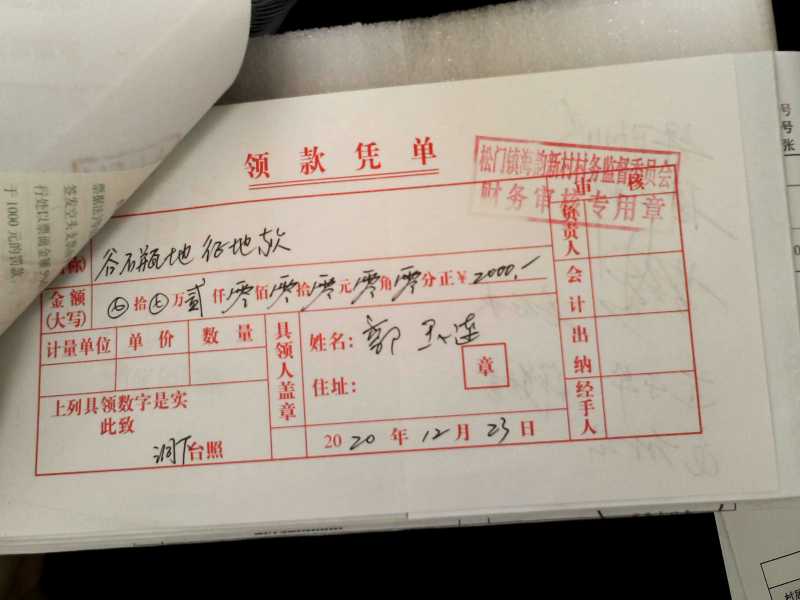 领款凭单
松门镇海韵新村村务监督委员会
财务审核专用章
审核
负责人
会计
出纳
经手人
谷石瓶地 征地款
金额
(大写)
拾 万 贰 仟 零 佰 零 拾 零 元 零 角 零 分正 ¥ 2000.-
计量单位 单价 数量
具领人盖章
姓名:
住址:
章
上列具领数字是实
此致
台照
2020 年 12 月 23 日
票据法
签发空头支
行处以票面金额
于 1000 元的罚款
号
号
张